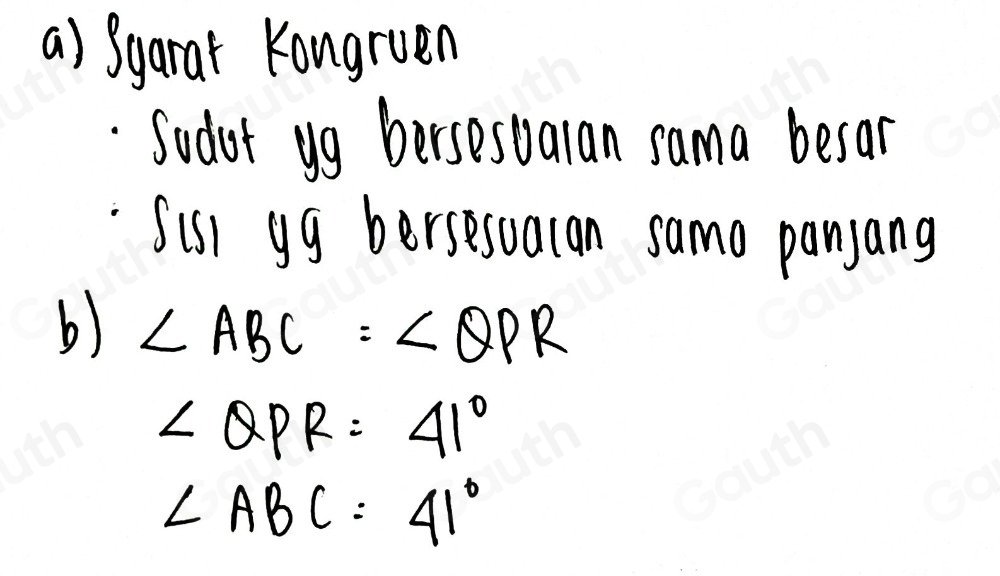 a) Syarat Kongruen
· Sudut yg bersesuaian sama besar
· Sisi yg bersesuaian sama panjang
b) ∠ ABC = ∠ QPR
∠ QPR = 41°
∠ ABC = 41°
Gauth